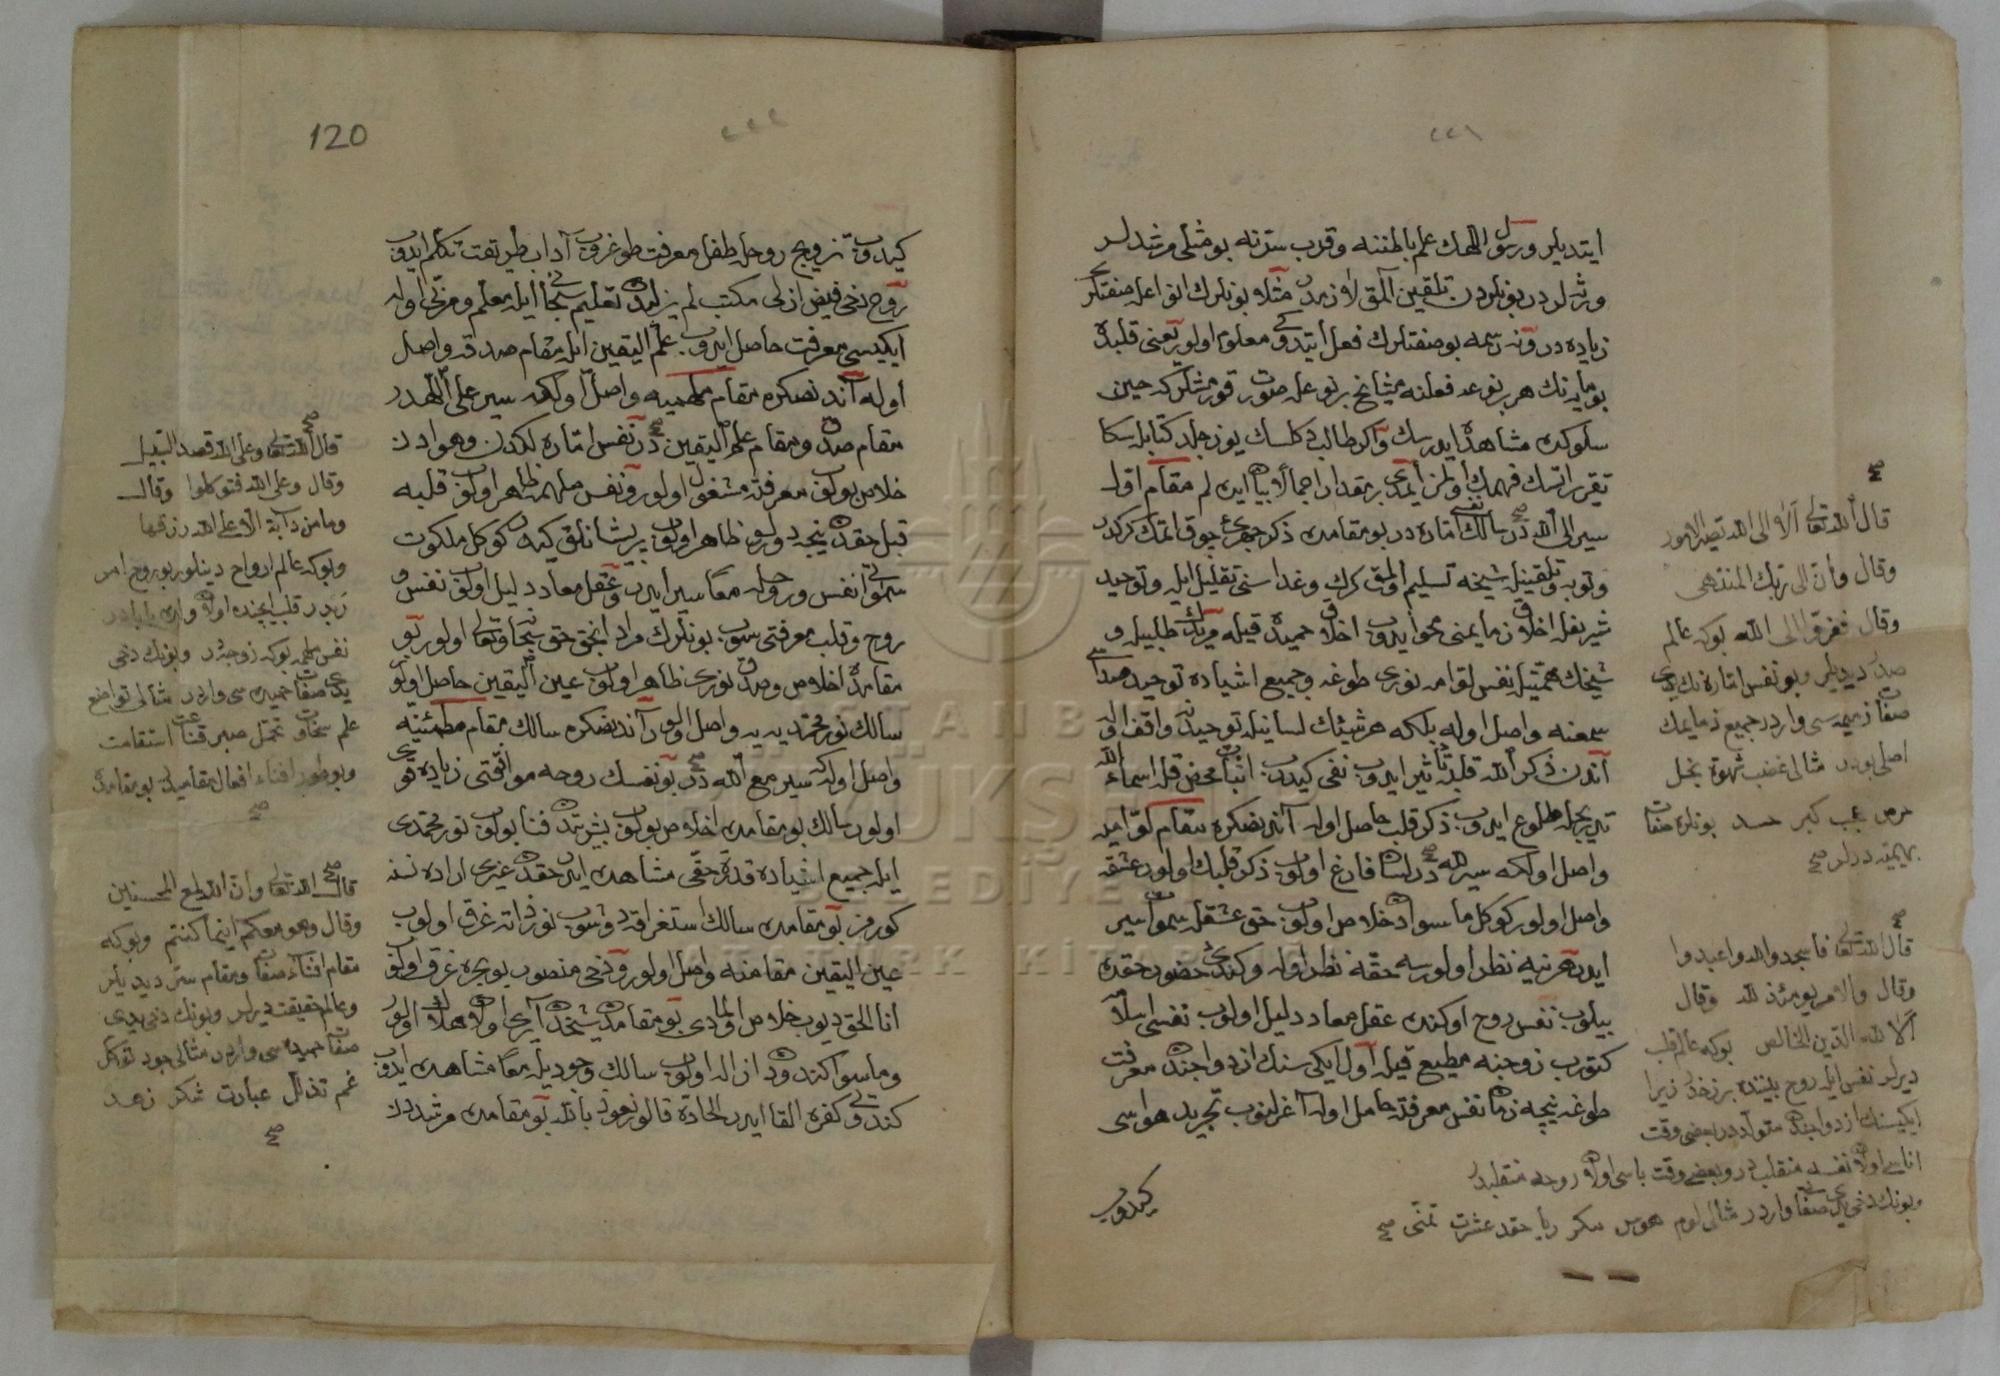 ٢٢١
ايتديلر ورسول اللهك علم باطننه وقرب سترنه بو مثلى مرشدلر
ورثه لردر بونلردن تلقين آلمق لازمدر مثلا بونلرك انواعله صفتلرى
زياده در ونه رسمه بو صفتلرك فعل ايتدوكى معلوم اولور يعنى قلبده
هر بر نوعه فعلنه مشايخ بر نوعله صورت قومشلركه حين
سلوكده مشاهده ايدرسك واكر طالب دكلسك يوز جلد كتابله سكا
تقرير اتسك فهمك اولمز بر مقدار اجمالا بيان ايده لم مقام اول
سير الى الله در سالك نفسى اماره در بو مقامده ذكر جهرى چوق اتمك كركدر
وتوبه وتلقينله شيخه تسليم اولمق كرك وغداسنى تقليل ايله وتوحيد
شريفله اخلاق ذمايمنى محو ايدوب اخلاق حميده قيله مريدك طلبيله و
شيخك همتيله نفس لوامه نورى طوغه وجميع اشياده توحيد صداسى
سمعنه واصل اوله بلكه هر شيئك لسانيله توحيدينه واقف اوله
آندن ذكر الله قلبه تأثير ايدوب نفى كيدوب اثبات محض قله اسماء الله
تدريجله طلوع ايدوب ذكر قلب حاصل اوله آندنصكره مقام لوامه
واصل اولكه سير لله در لسان فارغ اولوب ذكر قلبك اولور عشقه
واصل اولور كوكل ماسوادن خلاص اولوب حق عشقله سموات سير
ايدر هر نيه نظر اولورسه حقه نظر اوله وكندى حضور حقده
بيلوب نفس روح اوكنده عقل معاد دليل اولوب نفسى اسلامه
كتورب زوجنه مطيع قيله اول ايكى سنك ازدواجنده معرفت
طوغه نيچه زمان نفس معرفته حامل اوله آغرلنوب تجريد هواسى
كيدوب
قال الله تعالى ألا الى الله تصير الامور
وقال وأن الى ربك المنتهى
وقال ففروا الى الله بو كه عالم
صدر ديرلر وبو نفس اماره نك يدى
صفات ذميمه سى واردر جميع ذمايمك
اصلى بودر مثالى غضب شهوة بخل
حرص عجب كبر حسد بونلره صفات
بهيميه ديرلر صح
قال الله تعالى فاسجدوا لله واعبدوا
وقال والامر يومئذ لله وقال
ألا لله الدين الخالص بو كه عالم قلب
ديرلر نفس ايله روح بيننده برزخدر زيرا
ايكيسنك ازدواجندن متولددر بعضى وقت
اناسى اولان نفسه منقلبدر وبعضى وقت باباسى اولان روحه منقلبدر
وبونك دخى يدى صفاتى واردر مثالى لوم هوس مكر ريا حقد عشرت تمنى صح
٢٢٢
120
كيدوب تزويج روحله طفل معرفت طوغروب آداب طريقت تكلم ايدوب
روح دخى فيض ازلى مكتب لم يزلده تعليم سبحانى ايله معلم ومزكى اوله
ايكيسى معرفت حاصل ايدوب علم اليقين ايله مقام صدقه واصل
اوله آندنصكره مقام ملهميه واصل اولكه سير على اللهدر
مقام صدق ومقام علم اليقين در نفس اماره لكدن وهوادن
خلاص بولوب معرفته مشغول اولور ونفس ملهمه ظاهر اولوب قلبه
قبل حقدن نيجه دولو ظاهر اولوب پريشانلق كيده كوكل ملكوت
سمواتى نفس وروحله معا سير ايدر وعقل معاد دليل اولوب نفس و
روح وقلب معرفتى سوب بونلرك مرادى انجق حق سبحانه وتعالى اولور بو
مقامده اخلاص وصدق نورى ظاهر اولوب عين اليقين حاصل اولوب
سالك نور محمديه يه واصل اولور آندنصكره سالك مقام مطمئنيه
واصل اولكه سير مع الله در بو نفسك روحه موافقتى زياده قوى
اولور سالك بو مقامده اخلاص بولوب بشريتدن فنا بولوب نور محمدى
ايله جميع اشياده قدرة حقى مشاهده ايدر حقدن غيرى اراده نسنه
كورمز بو مقامده سالك استغراقه دوشوب نور ذاته غرق اولوب
عين اليقين مقامنه واصل اولور ودخى منصور بو بحره غرق اولوب
انا الحق ديوب خلاص اولمادى بو مقامده شيخندن آيرى اولان هلاك اولور
وماسوا كندودن ازاله اولوب سالك وجوديله معا مشاهده ايدوب
كندوى كفره القا ايدر الحادة قالور نعوذ بالله بو مقامده مرشد
قال الله تعالى وعلى الله قصد السبيل
وقال وعلى الله فتوكلوا وقال
وما من دآبة الا على الله رزقها
وبو كه عالم ارواح دينلور بو روح امر
ربدر قلب ايچنده اولان باباسيدر
نفس ملهمه بو كه زوجه در وبونك دخى
يدى صفات حميده سى واردر مثالى تواضع
علم سخاوت تحمل صبر قناعت استقامت
وبو طور افناء افعال مقاميدر بو مقامده
صح
قال الله تعالى وان الله لمع المحسنين
وقال وهو معكم اينما كنتم وبو كه
مقام افناء صفات ومقام سر ديديلر
وعالم حقيقت ديرلر وبونك دخى يدى
صفات حميده سى واردر مثالى جود توكل
غم تذلل عبادت شكر زهد
صح